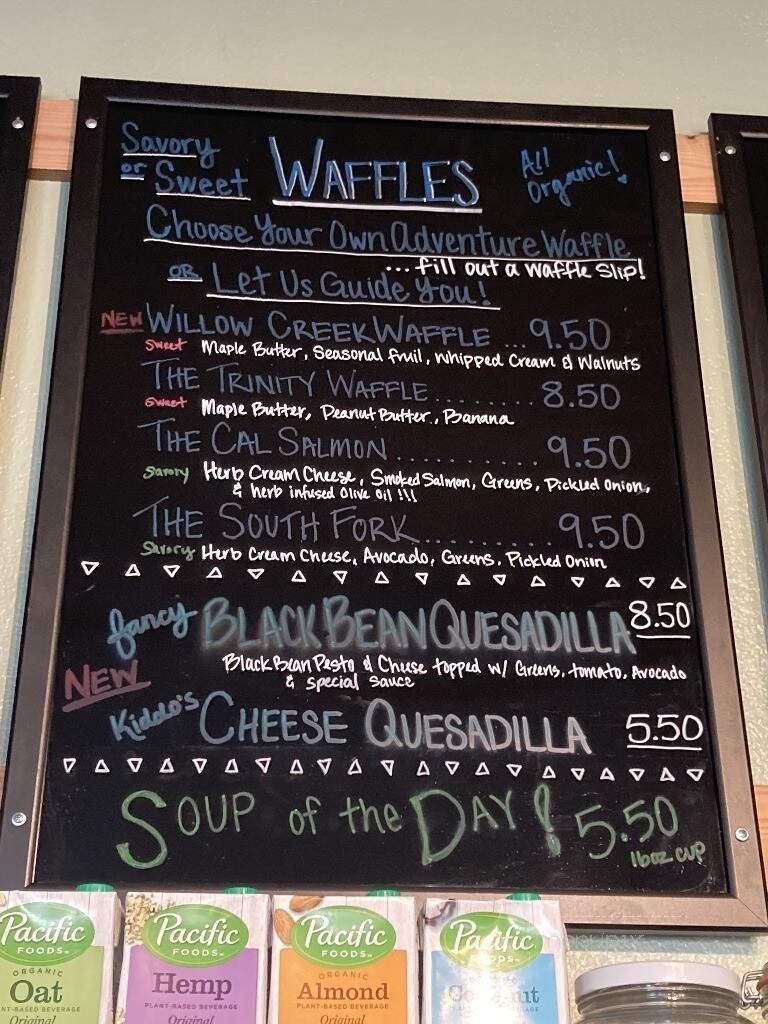 Savory
or Sweet
WAFFLES
All
Organic!
Choose Your Own Adventure Waffle
... fill out a waffle slip!
OR Let Us Guide You!
NEW WILLOW CREEK WAFFLE ... 9.50
Sweet Maple Butter, Seasonal fruit, Whipped Cream & Walnuts
THE TRINITY WAFFLE ......... 8.50
Sweet Maple Butter, Peanut Butter, Banana
THE CAL SALMON .......... 9.50
Savory Herb Cream Cheese, Smoked Salmon, Greens, Pickled Onion,
& herb infused Olive Oil !!!
THE SOUTH FORK ......... 9.50
Savory Herb Cream Cheese, Avocado, Greens, Pickled Onion
fancy BLACK BEAN QUESADILLA 8.50
Black Bean Pesto & Cheese topped w/ Greens, tomato, Avocado
& special sauce
NEW
Kiddo's CHEESE QUESADILLA 5.50
SOUP of the DAY! 5.50
16oz cup
Pacific
FOODS
ORGANIC
Oat
PLANT-BASED BEVERAGE
Original
Pacific
FOODS
Hemp
PLANT-BASED BEVERAGE
Original
Pacific
FOODS
ORGANIC
Almond
PLANT-BASED BEVERAGE
Original
Pacific
FOODS